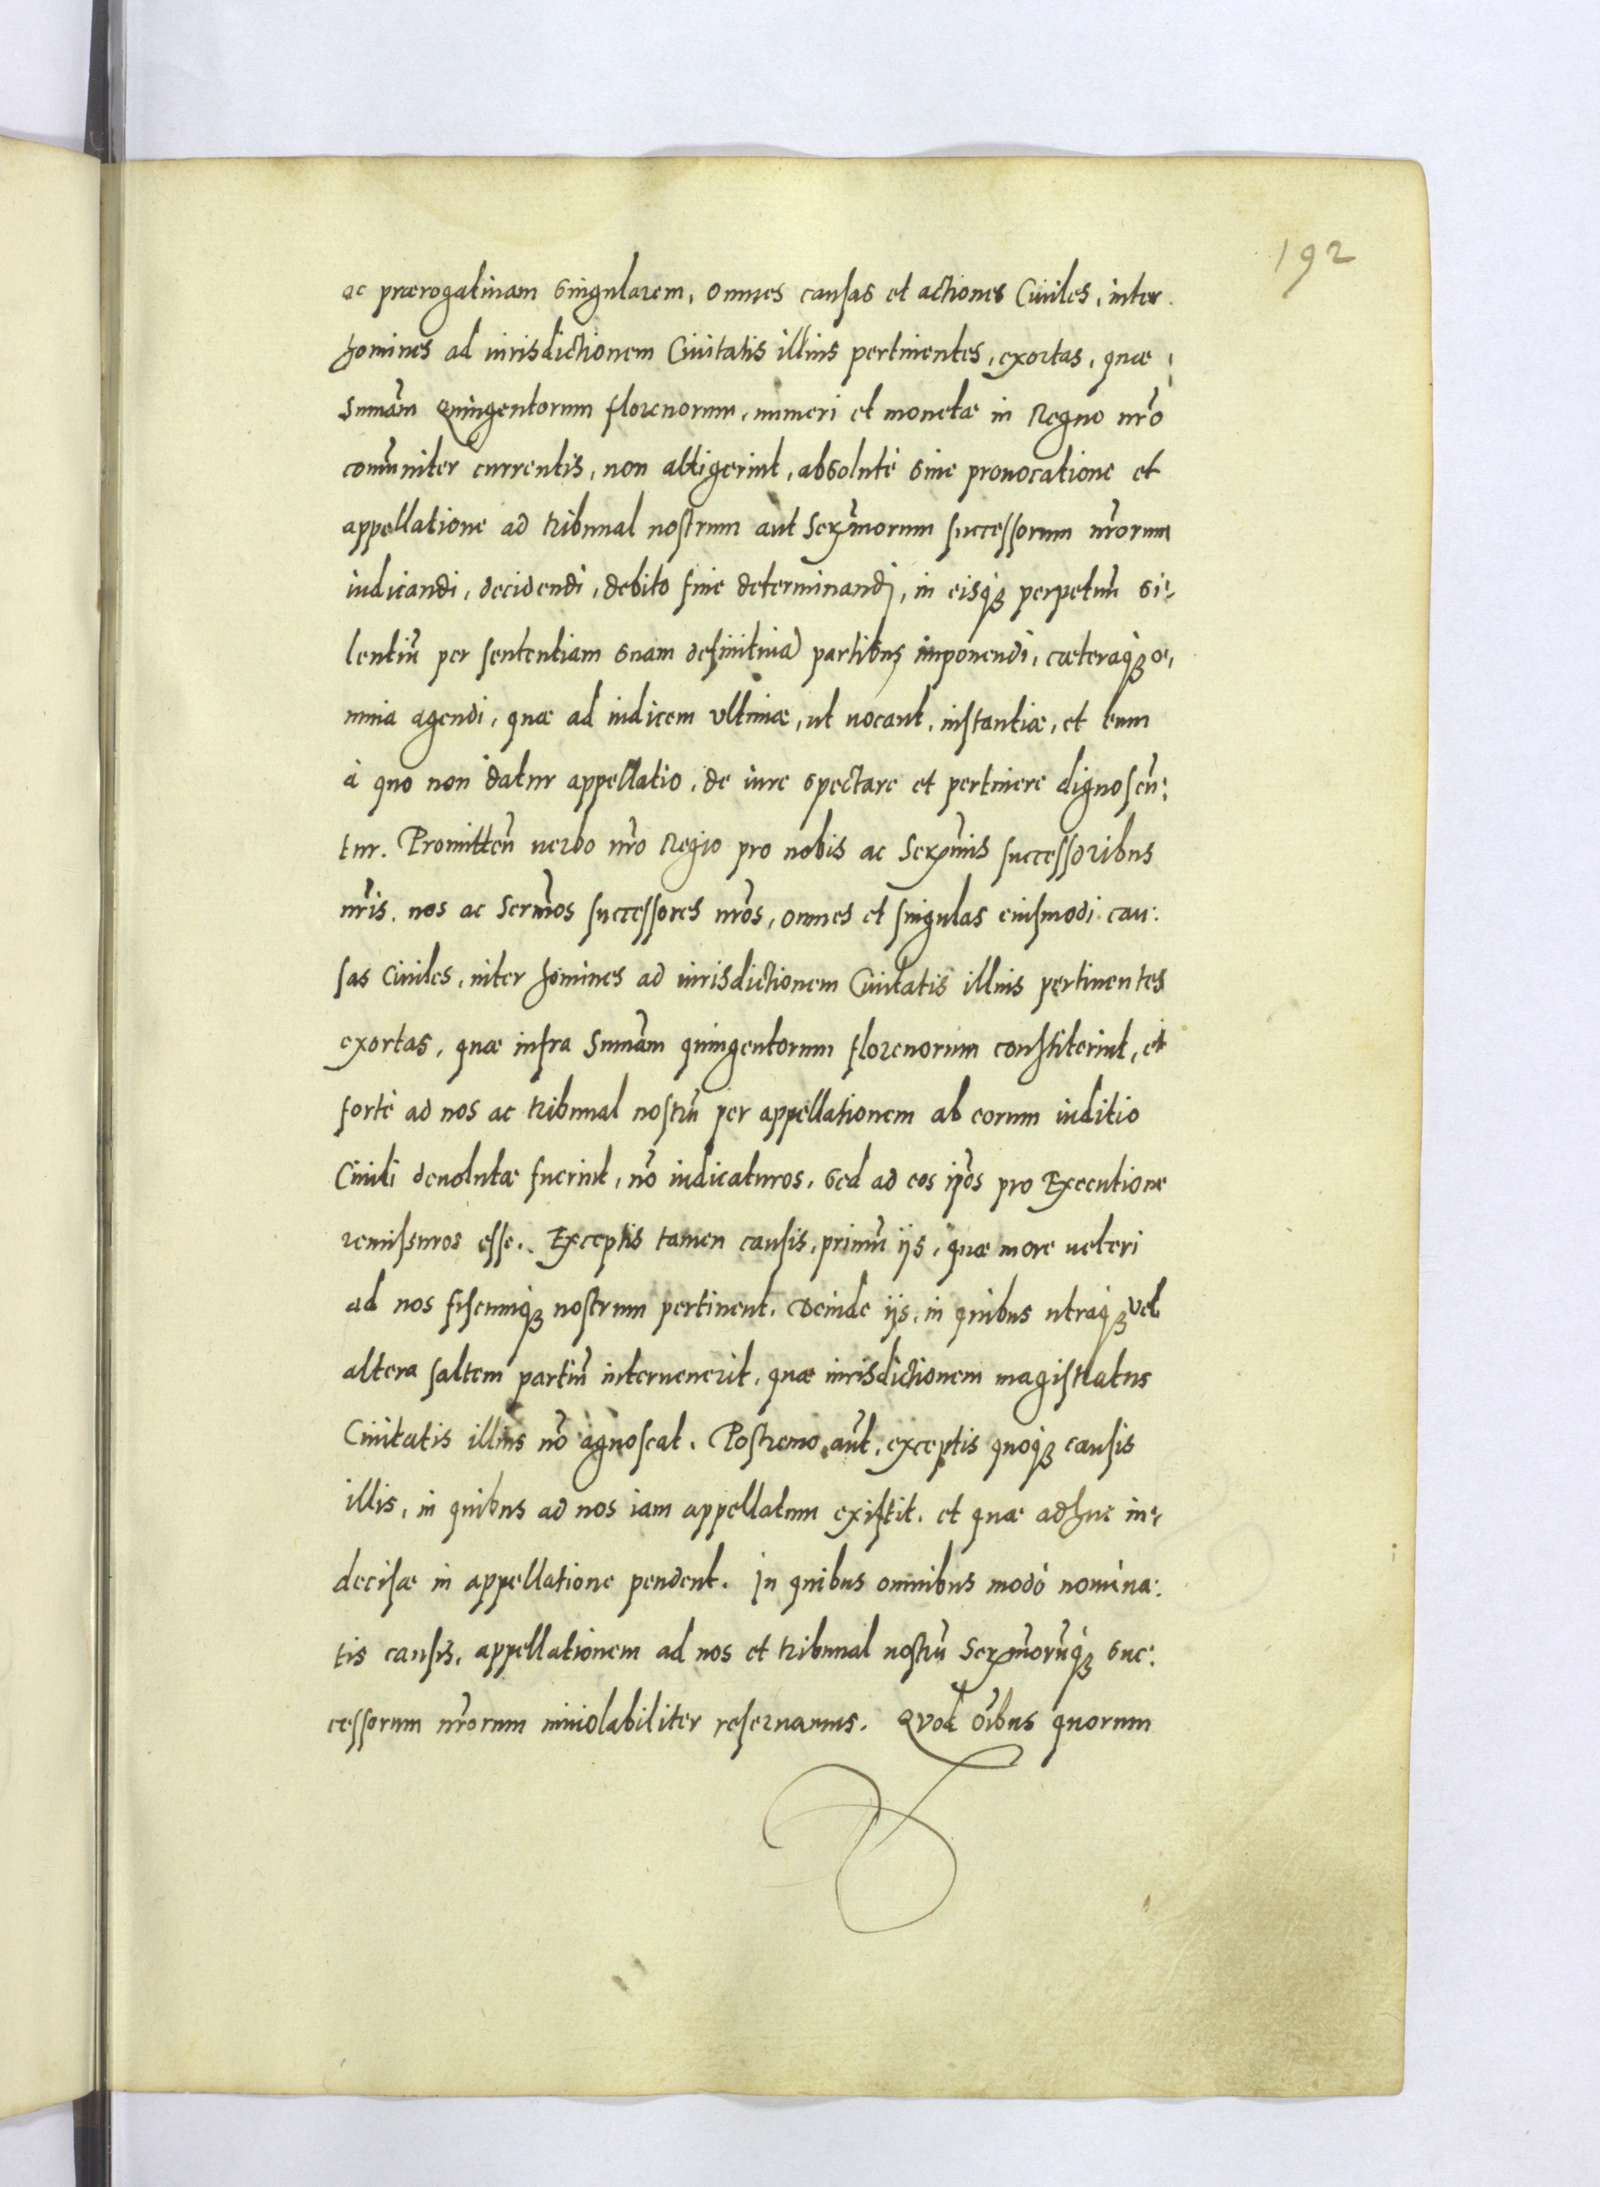 192
ac prærogatiuam singularem, omnes causas et actiones Ciuiles, inter
homines ad iurisdictionem Ciuitatis illius pertinentes, exortas, quæ
Sumãm Quingentorum florenorum, numeri et monetæ in Regno nr̃o
comũniter currentis, non attigerint, absolutè sine prouocatione et
appellatione ad tribunal nostrum aut Serẽmorum successorum nr̃orum
iudicandi, decidendi, debito fine determinandj, in eisq́ꝫ perpetuũ si⸗
lentiũ per sententiam suam definitiuã partibus imponendi, cæteraq́ꝫ o⸗
mnia agendi, quæ ad iudicem vltimæ, ut uocant, instantiæ, et eum
à quo non datur appellatio, de iure spectare et pertinere dignoscũ⸗
tur. Promitteñ uerbo nr̃o Regio pro nobis ac Serẽmis successoribus
nr̃is. nos ac Serm̃os successores nr̃os, omnes et singulas eiusmodi cau⸗
sas Ciuiles, inter homines ad iurisdictionem Ciuitatis illius pertinentes
exortas, quæ infra Sumãm quingentorum florenorum constiterint, et
fortè ad nos ac tribunal nostrũ per appellationem ab eorum iuditio
Ciuili deuolutæ fuerint, nõ iudicaturos, sed ad eos ip̃os pro Executione
remissuros esse. Exceptis tamen causis, primũ ijs, quæ more ueteri
ad nos fiscumq́ꝫ nostrum pertinent. deinde ijs, in quibus utraq́ꝫ vel
altera saltem partiũ interuenerit, quæ iurisdictionem magistratus
Ciuitatis illius nõ agnoscat. Postremo, aũt, exceptis quoq́ꝫ causis
illis, in quibus ad nos iam appellatum existit, et quæ adhuc in⸗
decisæ in appellatione pendent. In quibus omnibus modò nomina⸗
tis causis, appellationem ad nos et tribunal nostrũ Serẽmorũq́ꝫ suc⸗
cessorum nr̃orum inuiolabiliter reseruamus. Quod oĩbus quorum